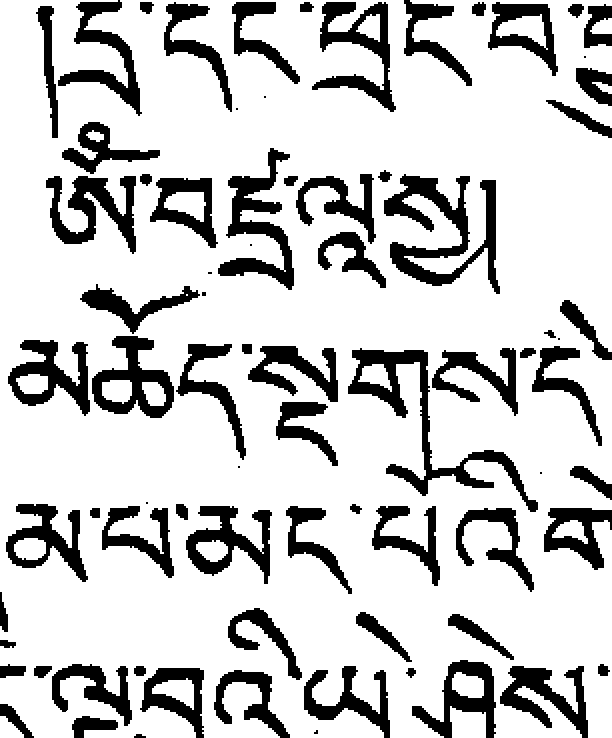 །དྲ་དང་ཕྲང་བ་
ཨོཾ་བཛྲ་ལཱ་སྱ།
མཆོད་སྔགས་དེ
མ་པ་མང་པོའི་
ལྟ་བའི་ཡེ་ཤེས་